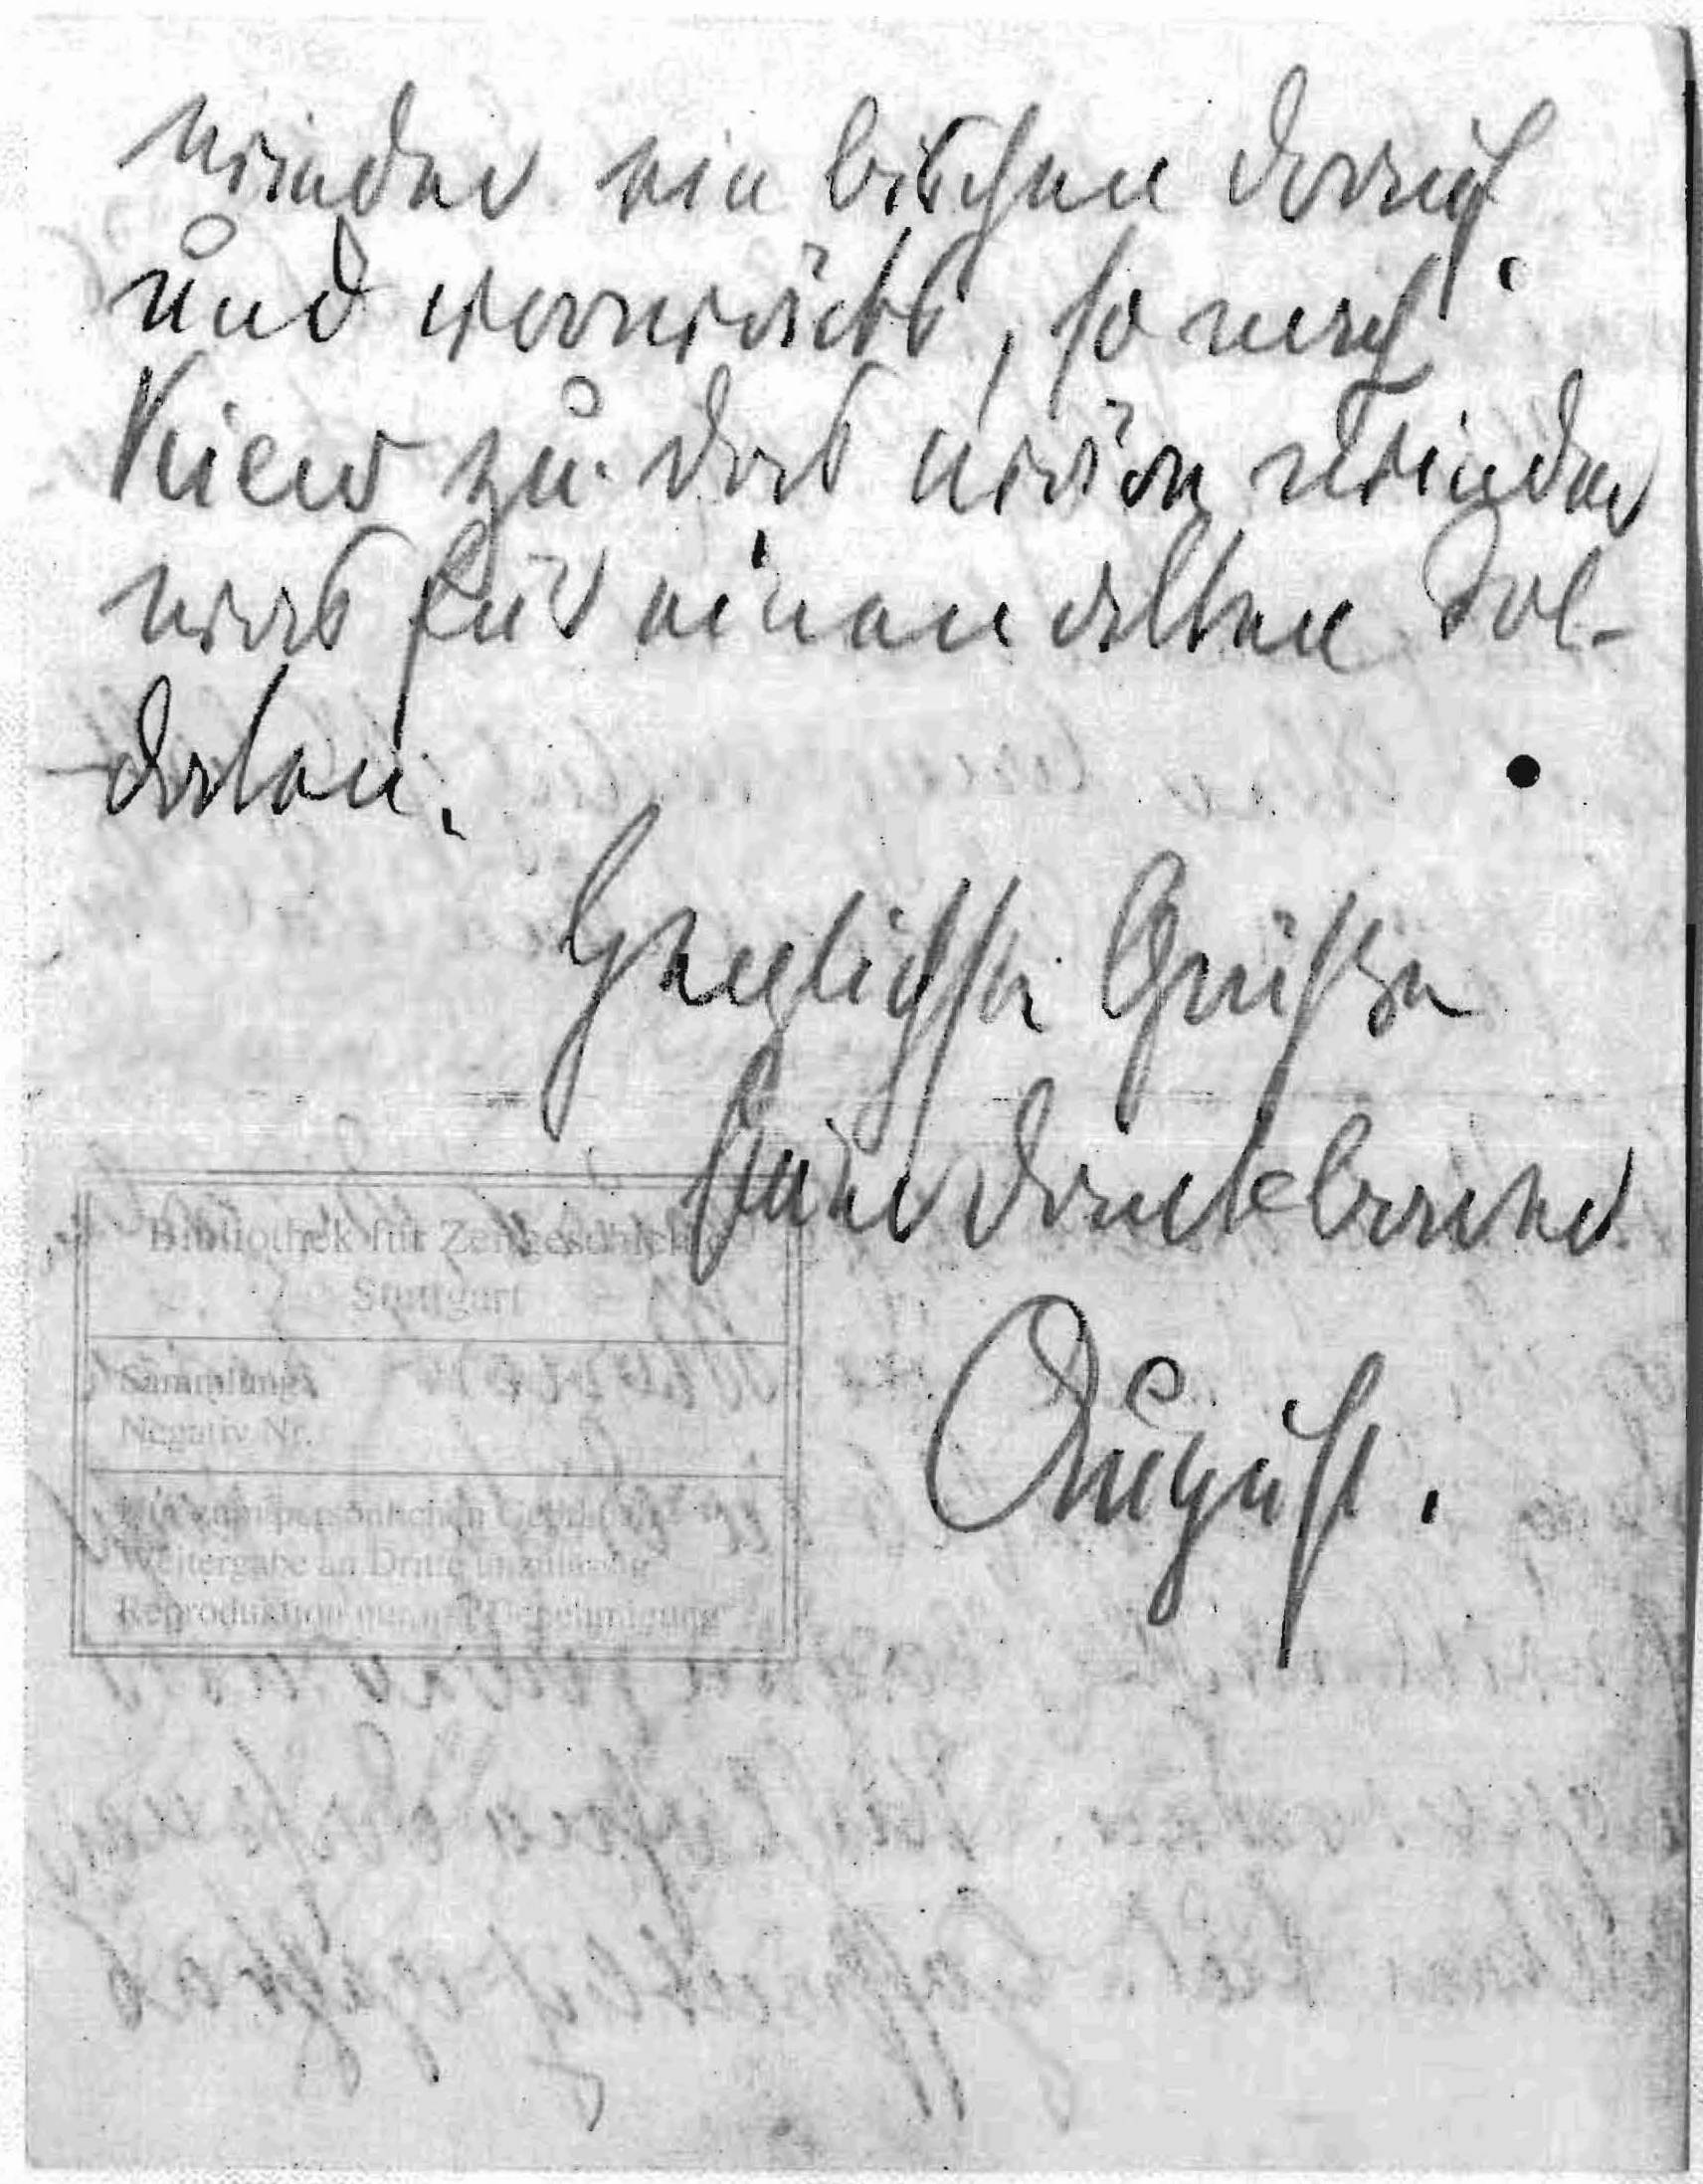 wieder ein bischen drauf
und vorwärts, so nach
Kiew zu. das wäre wieder
was für einen alten Sol-
daten.
Herzlichste Grüße
Euer dankbarer
August.
Bibliothek für Zeitgeschichte
Stuttgart
Sammlung:
Negativ Nr.
Nur zum persönlichen Gebrauch
Weitergabe an Dritte unzulässig
Reproduktion nur mit Genehmigung